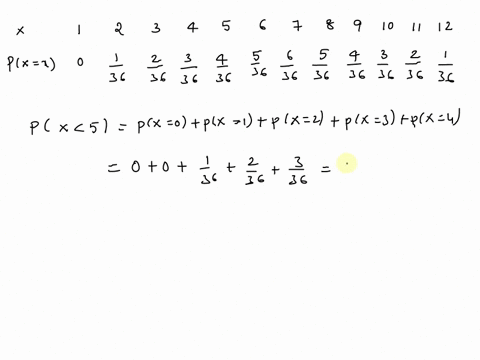 x 1 2 3 4 5 6 7 8 9 10 11 12
P(x=x) 0 1/36 2/36 3/36 4/36 5/36 6/36 5/36 4/36 3/36 2/36 1/36
P(x<5) = p(x=0)+p(x=1)+p(x=2)+p(x=3)+p(x=4)
= 0+0+ 1/36 + 2/36 + 3/36 =